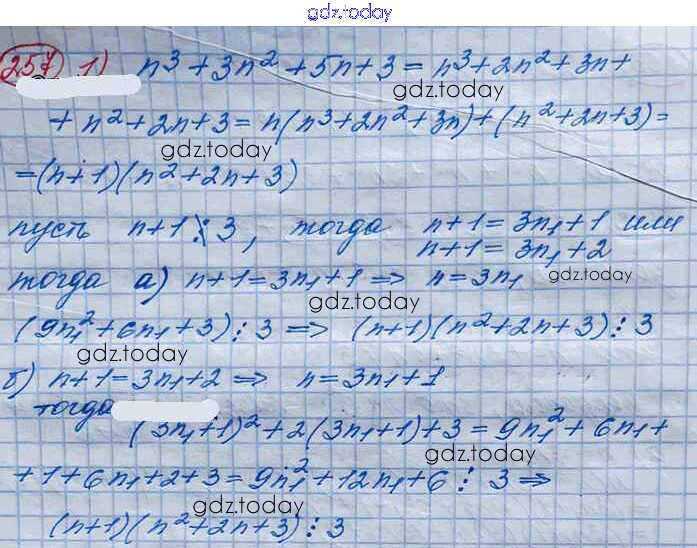 gdz.today
257 1) n³ + 3n² + 5n + 3 = n³ + 2n² + 3n +
gdz.today
+ n² + 2n + 3 = n(n³ + 2n² + 3n) + (n² + 2n + 3) =
gdz.today
= (n + 1)(n² + 2n + 3)
пусть n + 1 ⋮̸ 3, тогда n + 1 = 3n₁ + 1 или
n + 1 = 3n₁ + 2
тогда а) n + 1 = 3n₁ + 1 => n = 3n₁ gdz.today
gdz.today
(9n₁² + 6n₁ + 3) ⋮ 3 => (n + 1)(n² + 2n + 3) ⋮ 3
gdz.today
б) n + 1 = 3n₁ + 2 => n = 3n₁ + 1
тогда
(3n₁ + 1)² + 2(3n₁ + 1) + 3 = 9n₁² + 6n₁ +
gdz.today
+ 1 + 6n₁ + 2 + 3 = 9n₁² + 12n₁ + 6 ⋮ 3 =>
gdz.today
(n + 1)(n² + 2n + 3) ⋮ 3